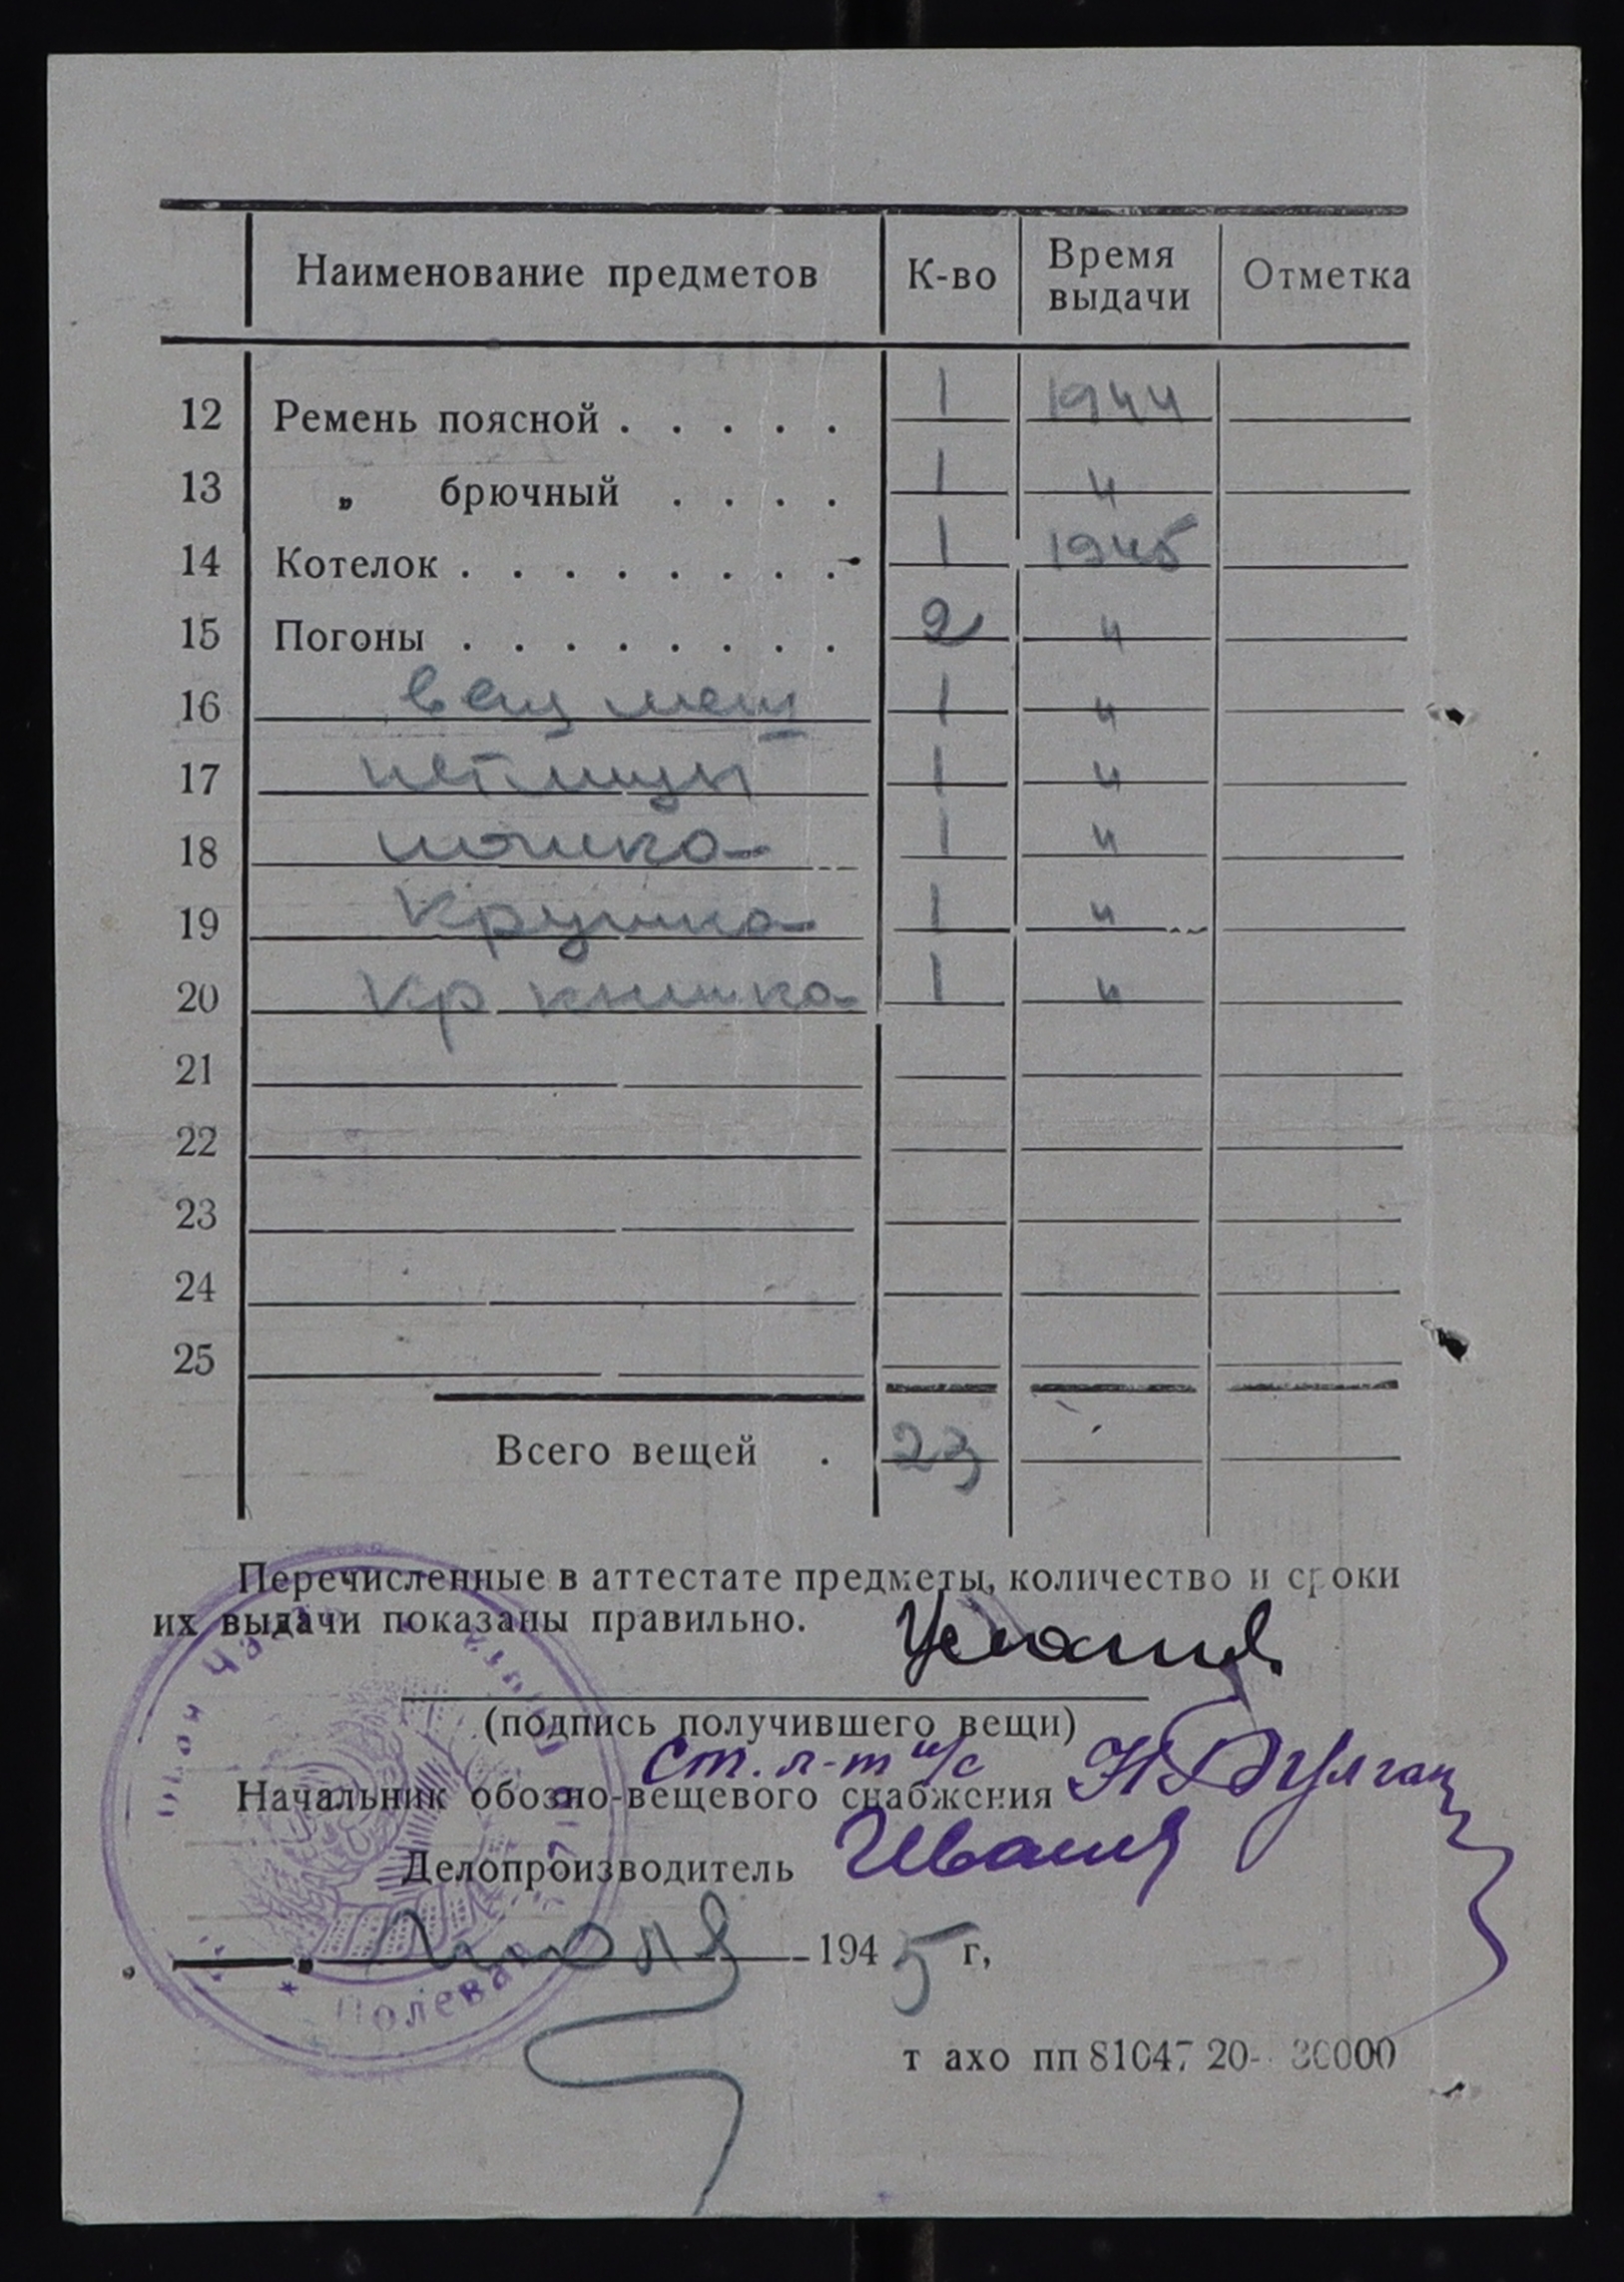 Наименование предметов К-во Время выдачи Отметка
12 Ремень поясной . . . . . 1 1944
13 „ брючный . . . . 1 "
14 Котелок . . . . . . . . 1 1945
15 Погоны . . . . . . . . 2 "
16 вещ меш 1 "
17 петлицы 1 "
18 ложка 1 "
19 Крушка 1 "
20 Кр книшка 1 "
21
22
23
24
25
Всего вещей . 23
Перечисленные в аттестате предметы, количество и сроки
их выдачи показаны правильно.
(подпись получившего вещи)
Ст. л-т и/с
Начальник обозно-вещевого снабжения
Делопроизводитель
июля 1945 г,
Полевая
т ахо пп 81047 20- 30000